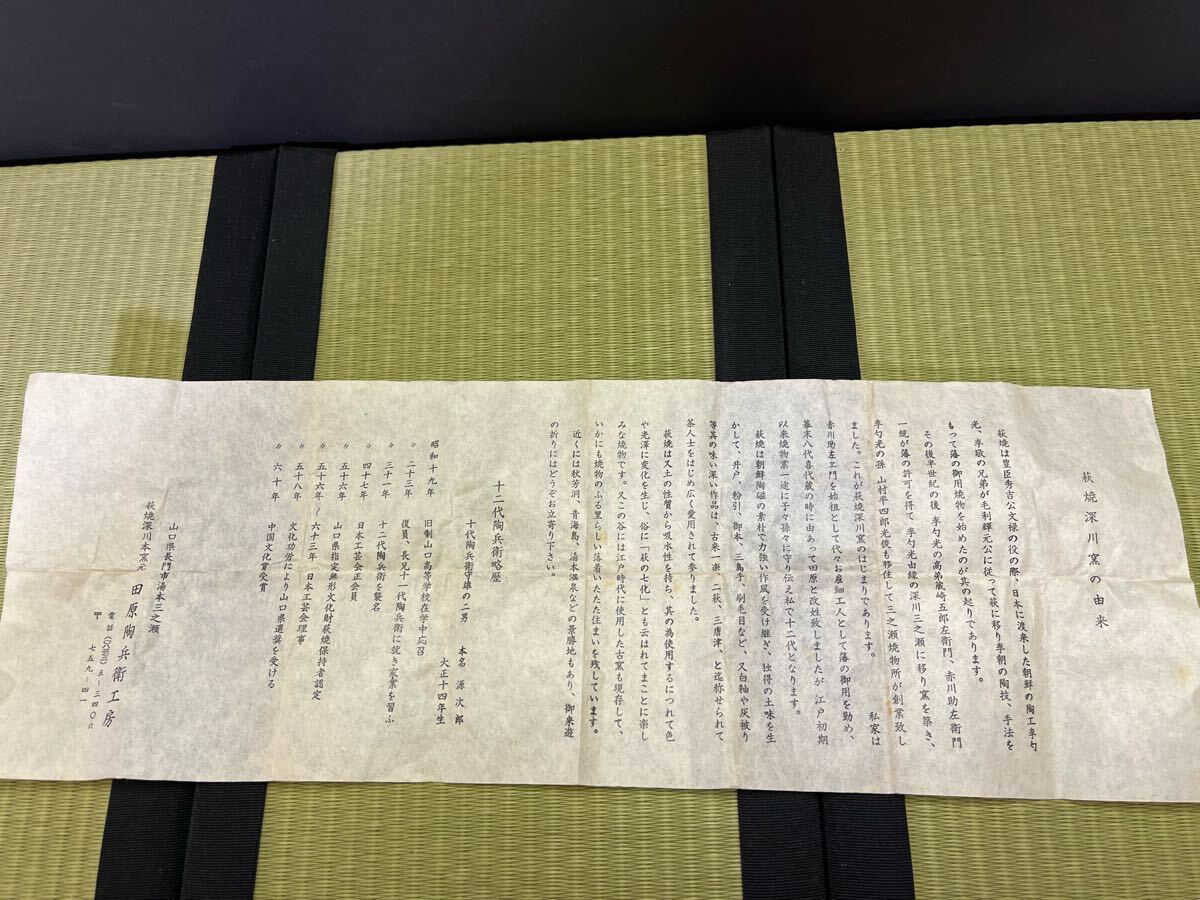 萩焼深川窯の由来
萩焼は豊臣秀吉公文禄の役の際、日本に渡来した朝鮮の陶工李勺
光、李敬の兄弟が毛利輝元公に従って萩に移り李朝の陶技、手法を
もって藩の御用焼物を始めたのが其の起りであります。
その後半世紀の後、李勺光の高弟蔵崎五郎左衛門、赤川助左衛門
一統が藩の許可を得て、李勺光由縁の深川三之瀬に移り窯を築き、
李勺光の孫 山村平四郎光俊も移住して三之瀬焼物所が創業致し
ました。これが萩焼深川窯のはじまりであります。 私家は
赤川助左エ門を始祖として代々お雇細工人として藩の御用を勤め、
幕末八代喜代蔵の時に由あって田原と改姓致しましたが 江戸初期
以来焼物業一途に子々孫々に守り伝え私で十二代となります。
萩焼は朝鮮陶磁の素朴で力強い作風を受け継ぎ、独得の土味を生
かして、井戸、粉引、御本、三島手、刷毛目など、又白釉や灰被り
等其の味い深い作品は、古来一楽、二萩、三唐津、と迄称せられて
茶人士をはじめ広く愛用されて参りました。
萩焼は又土の性質から吸水性を持ち、其の為使用するにつれて色
や光澤に変化を生じ、俗に「萩の七化」とも云はれてまことに楽し
みな焼物です。又この谷には江戸時代に使用した古窯も現存して、
いかにも焼物のふる里らしい落着いたたた住まいを残しています。
近くには秋芳洞、青海島、湯本温泉などの景勝地もあり、御来遊
の折りにはどうぞお立寄り下さい。
十二代陶兵衛略歴
十代陶兵衛守雄の二男 本名 源次郎
大正十四年生
昭和十九年 旧制山口高等学校在学中応召
〃 二十三年 復員、長兄十一代陶兵衛に就き家業を習ふ
〃 三十一年 十二代陶兵衛を襲名
〃 四十七年 日本工芸会正会員
〃 五十六年 山口県指定無形文化財萩焼保持者認定
〃 五十六年〜六十三年 日本工芸会理事
〃 五十八年 文化功労により山口県選奨を受ける
〃 六十年 中国文化賞受賞
山口県長門市湯本三之瀬
萩焼深川本窯元 田原陶兵衛工房
電話(〇八三七二)五-三四〇六
〒 七五九-四一